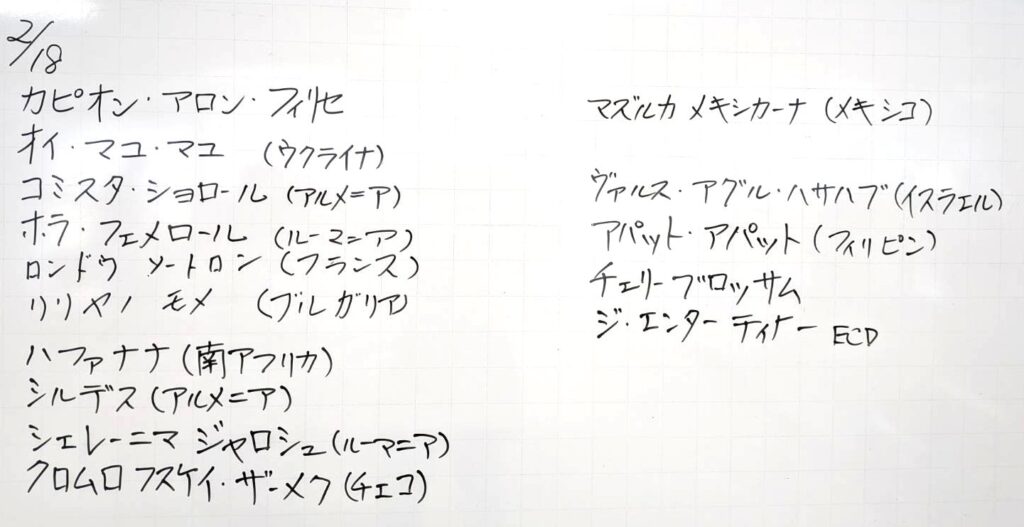 2/18
カピオン・アロン・フィリセ
オイ・マユ・マユ (ウクライナ)
コミスタ・ショロール (アルメニア)
ホラ・フェメロール (ルーマニア)
ロンドウ ソートロン (フランス)
リリヤノ モメ (ブルガリア)
ハファナナ (南アフリカ)
シルデス (アルメニア)
シェレーニマ ジャロシュ (ルーマニア)
クロムロフスケイ・ザーメク (チェコ)
マズルカ メキシカーナ (メキシコ)
ヴァルス・アグル・ハサハブ (イスラエル)
アパット・アパット (フィリピン)
チェリーブロッサム
ジ・エンターティナー ECD